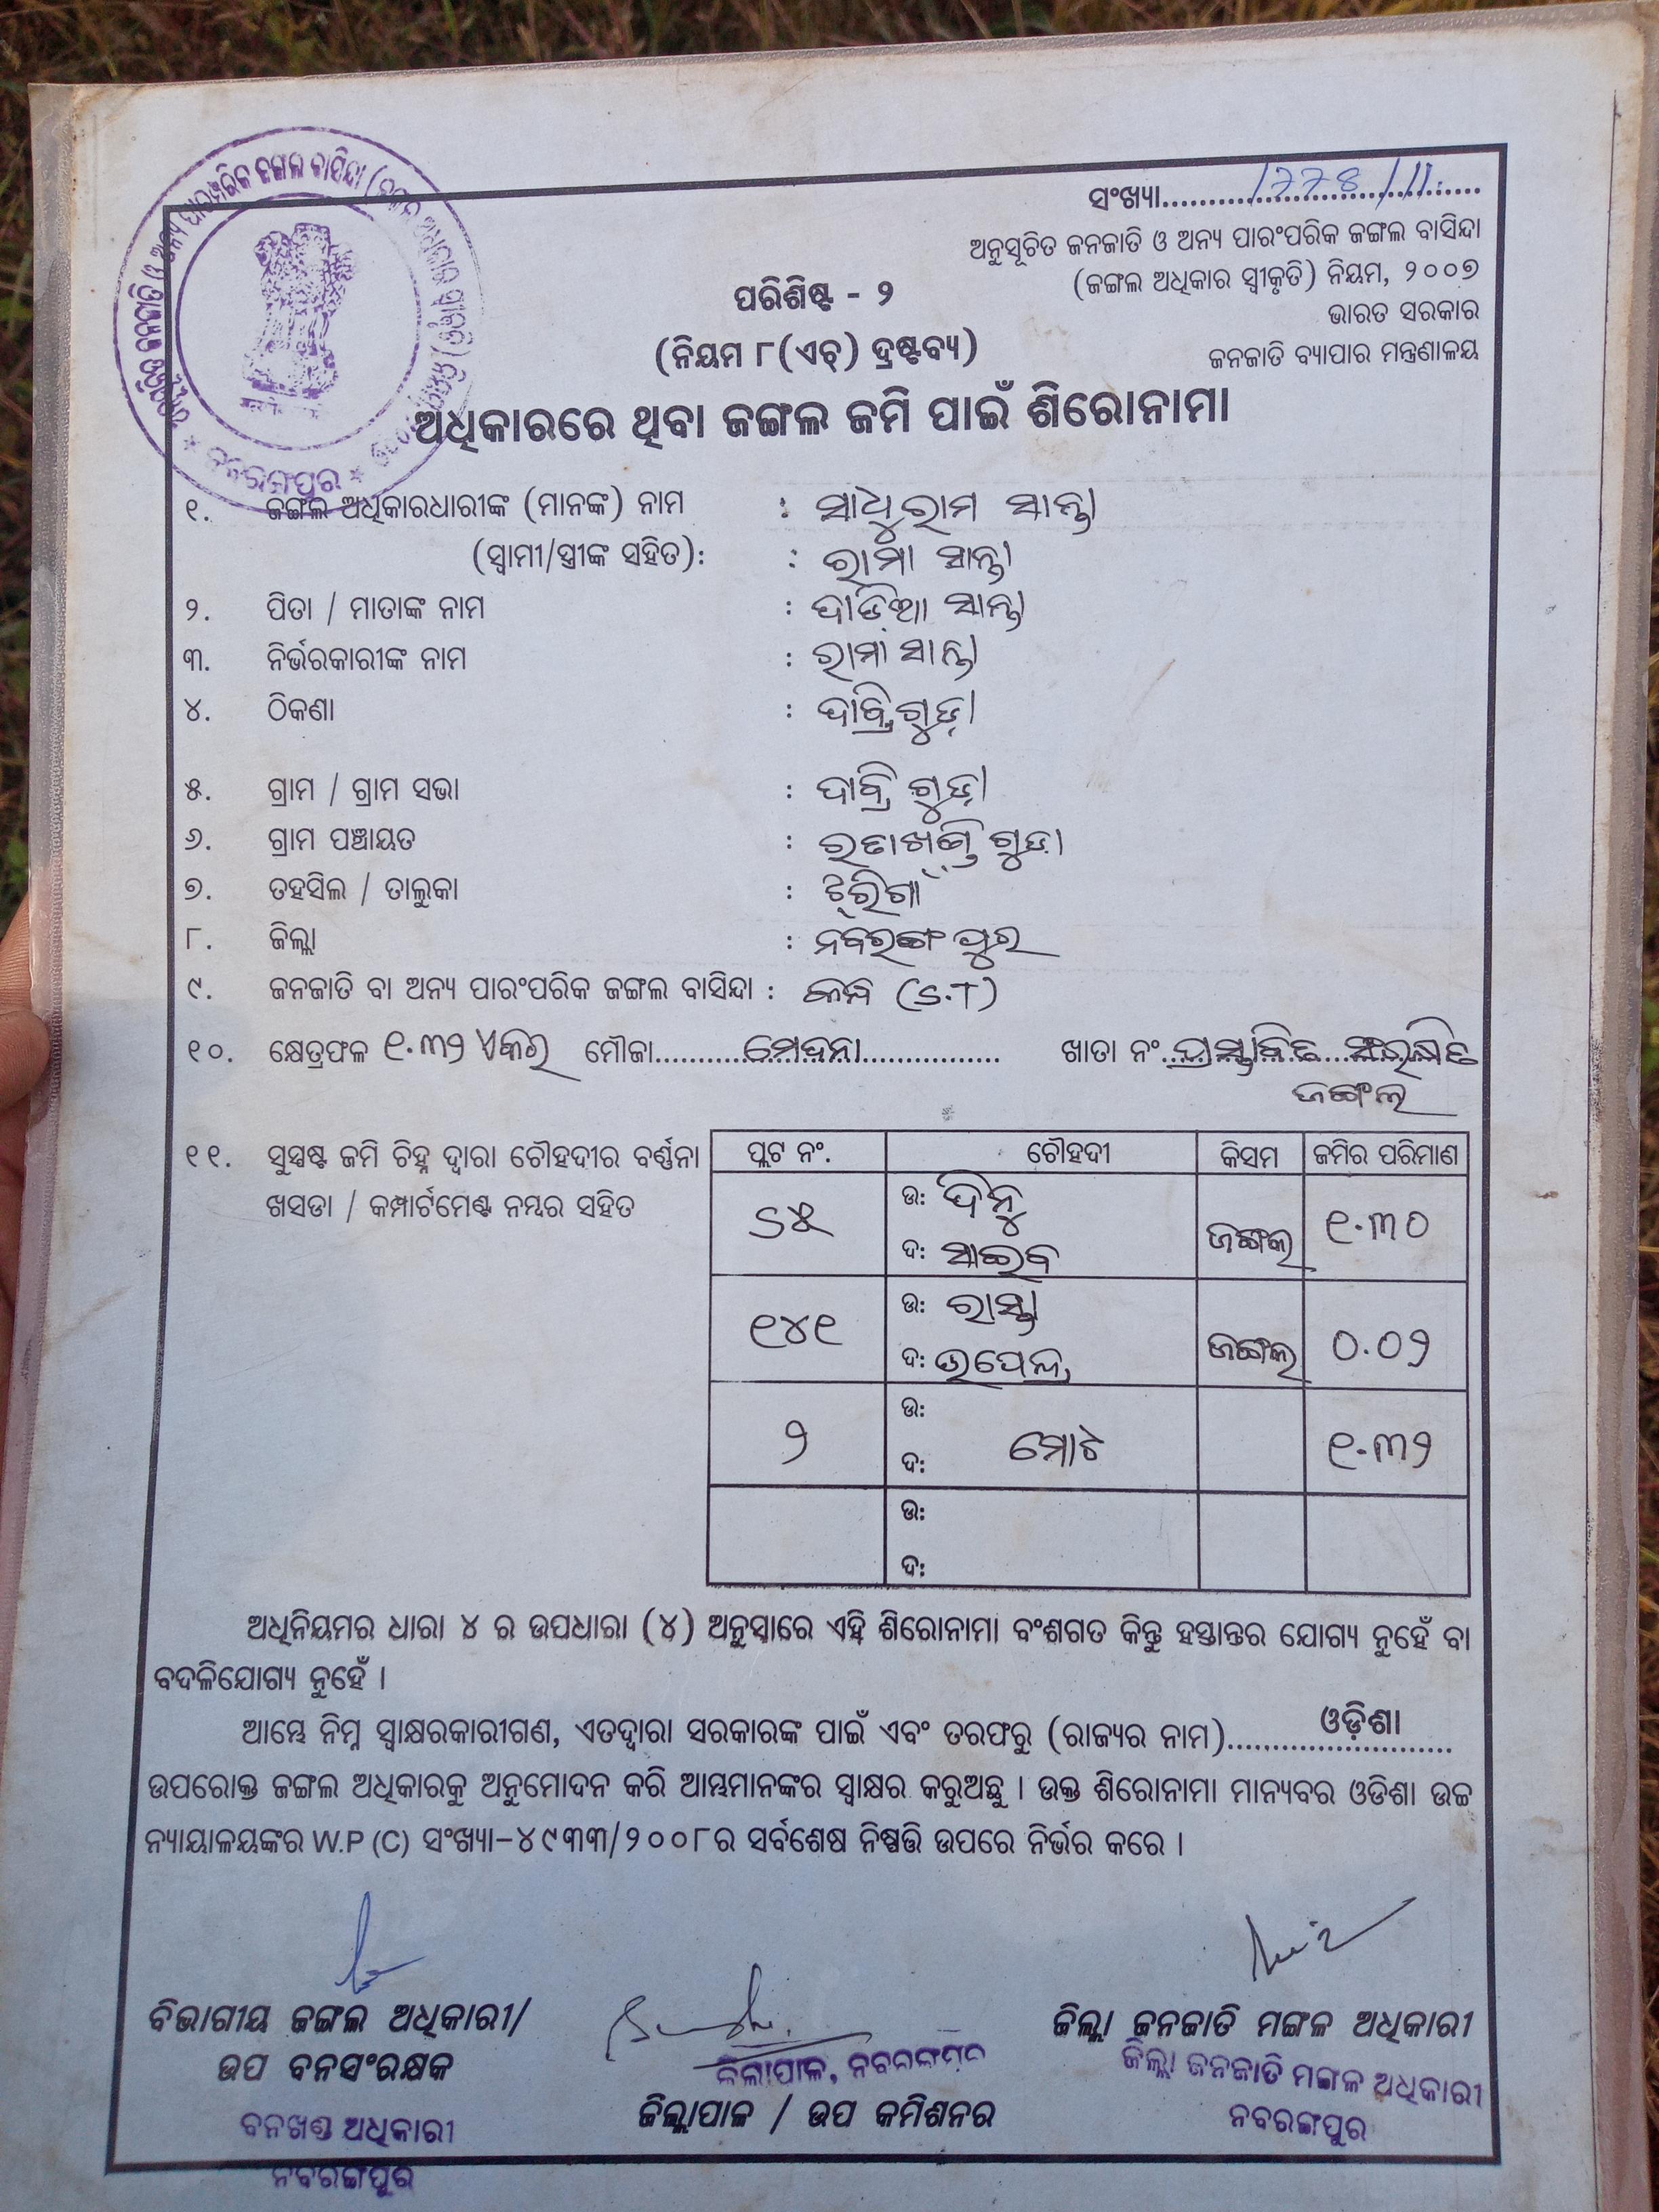 ସଂଖ୍ୟା................................
ଅନୁସୂଚିତ ଜନଜାତି ଓ ଅନ୍ୟ ପାରଂପରିକ ଜଙ୍ଗଲ ବାସିନ୍ଦା
(ଜଙ୍ଗଲ ଅଧିକାର ସ୍ୱୀକୃତି) ନିୟମ, ୨୦୦୭
ଭାରତ ସରକାର
ଜନଜାତି ବ୍ୟାପାର ମନ୍ତ୍ରଣାଳୟ
ପରିଶିଷ୍ଟ - ୨
(ନିୟମ ୮(ଏଚ୍) ଦ୍ରଷ୍ଟବ୍ୟ)
ଅଧିକାରରେ ଥିବା ଜଙ୍ଗଲ ଜମି ପାଇଁ ଶିରୋନାମା
୧. ଜଙ୍ଗଲ ଅଧିକାରଧାରୀଙ୍କ (ମାନଙ୍କ) ନାମ : ସାଧୁରାମ ସାନ୍ତା
(ସ୍ୱାମୀ/ସ୍ତ୍ରୀଙ୍କ ସହିତ): : ରାମା ସାନ୍ତା
୨. ପିତା / ମାତାଙ୍କ ନାମ : ସାନ୍ତା
୩. ନିର୍ଭରକାରୀଙ୍କ ନାମ : ରାମା ସାନ୍ତା
୪. ଠିକଣା :
୫. ଗ୍ରାମ / ଗ୍ରାମ ସଭା :
୬. ଗ୍ରାମ ପଞ୍ଚାୟତ : ରତାଖଣ୍ଡିଗୁଡା
୭. ତହସିଲ / ତାଲୁକା : ଝରିଗାଁ
୮. ଜିଲ୍ଲା : ନବରଙ୍ଗପୁର
୯. ଜନଜାତି ବା ଅନ୍ୟ ପାରଂପରିକ ଜଙ୍ଗଲ ବାସିନ୍ଦା : କନ୍ଧ (S.T)
୧୦. କ୍ଷେତ୍ରଫଳ ୧.୩୨ ଏକର ମୌଜା ମେଦନା ଖାତା ନଂ ପ୍ରସ୍ତାବିତ ସଂରକ୍ଷିତ
ଜଙ୍ଗଲ
୧୧. ସୁସ୍ପଷ୍ଟ ଜମି ଚିହ୍ନ ଦ୍ୱାରା ଚୌହଦୀର ବର୍ଣ୍ଣନା
ଖସଡା / କମ୍ପାର୍ଟମେଣ୍ଟ ନମ୍ବର ସହିତ
ପ୍ଲଟ ନଂ. ଚୌହଦୀ କିସମ ଜମିର ପରିମାଣ
୬୫ ଉ: ଦିନୁ ଜଙ୍ଗଲ ୧.୩୦
ଦ: ସାଇବ
୧୪୧ ଉ: ରାସ୍ତା ଜଙ୍ଗଲ ୦.୦୨
ଦ: ଉପେନ୍ଦ୍ର
୨ ଉ: ମୋଟ ୧.୩୨
ଦ:
ଉ:
ଦ:
ଅଧିନିୟମର ଧାରା ୪ ର ଉପଧାରା (୪) ଅନୁସାରେ ଏହି ଶିରୋନାମା ବଂଶଗତ କିନ୍ତୁ ହସ୍ତାନ୍ତର ଯୋଗ୍ୟ ନୁହେଁ ବା
ବଦଳିଯୋଗ୍ୟ ନୁହେଁ ।
ଆମ୍ଭେ ନିମ୍ନ ସ୍ୱାକ୍ଷରକାରୀଗଣ, ଏତଦ୍ୱାରା ସରକାରଙ୍କ ପାଇଁ ଏବଂ ତରଫରୁ (ରାଜ୍ୟର ନାମ) ଓଡ଼ିଶା
ଉପରୋକ୍ତ ଜଙ୍ଗଲ ଅଧିକାରକୁ ଅନୁମୋଦନ କରି ଆମ୍ଭମାନଙ୍କର ସ୍ୱାକ୍ଷର କରୁଅଛୁ । ଉକ୍ତ ଶିରୋନାମା ମାନ୍ୟବର ଓଡିଶା ଉଚ୍ଚ
ନ୍ୟାୟାଳୟଙ୍କର W.P (C) ସଂଖ୍ୟା-୪୯୩୩/୨୦୦୮ର ସର୍ବଶେଷ ନିଷ୍ପତ୍ତି ଉପରେ ନିର୍ଭର କରେ ।
ବିଭାଗୀୟ ଜଙ୍ଗଲ ଅଧିକାରୀ/
ଉପ ବନସଂରକ୍ଷକ
ବନଖଣ୍ଡ ଅଧିକାରୀ
ନବରଙ୍ଗପୁର
ଜିଲାପାଳ, ନବରଙ୍ଗପୁର
ଜିଲ୍ଲାପାଳ / ଉପ କମିଶନର
ଜିଲ୍ଲା ଜନଜାତି ମଙ୍ଗଳ ଅଧିକାରୀ
ଜିଲ୍ଲା ଜନଜାତି ମଙ୍ଗଳ ଅଧିକାରୀ
ନବରଙ୍ଗପୁର